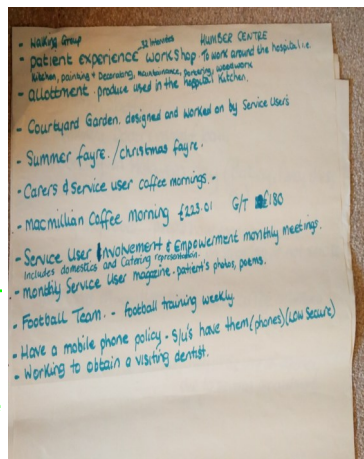 - Walking Group
32 intensites HUMBER CENTRE
- patient experience workshop. To work around the hospital i.e
kitchen, painting + Decorating, maintainance, gardening, woodwork
- allottment. produce used in the hospital Kitchen.
- Courtyard Garden. designed and worked on by Service Users
- Summer fayre. / christmas fayre.
- Carers & service user coffee mornings. -
- macmillian Coffee morning £223.01 G/T £180
- Service User Involvement & Empowerment monthly meetings.
Includes domestics and Catering representation.
- monthly Service User magazine. patient's photos, poems.
- Football Team. - Football training weekly.
- Have a mobile phone policy - S/U's have them (phones) (Low Secure)
- Working to obtain a visiting dentist.